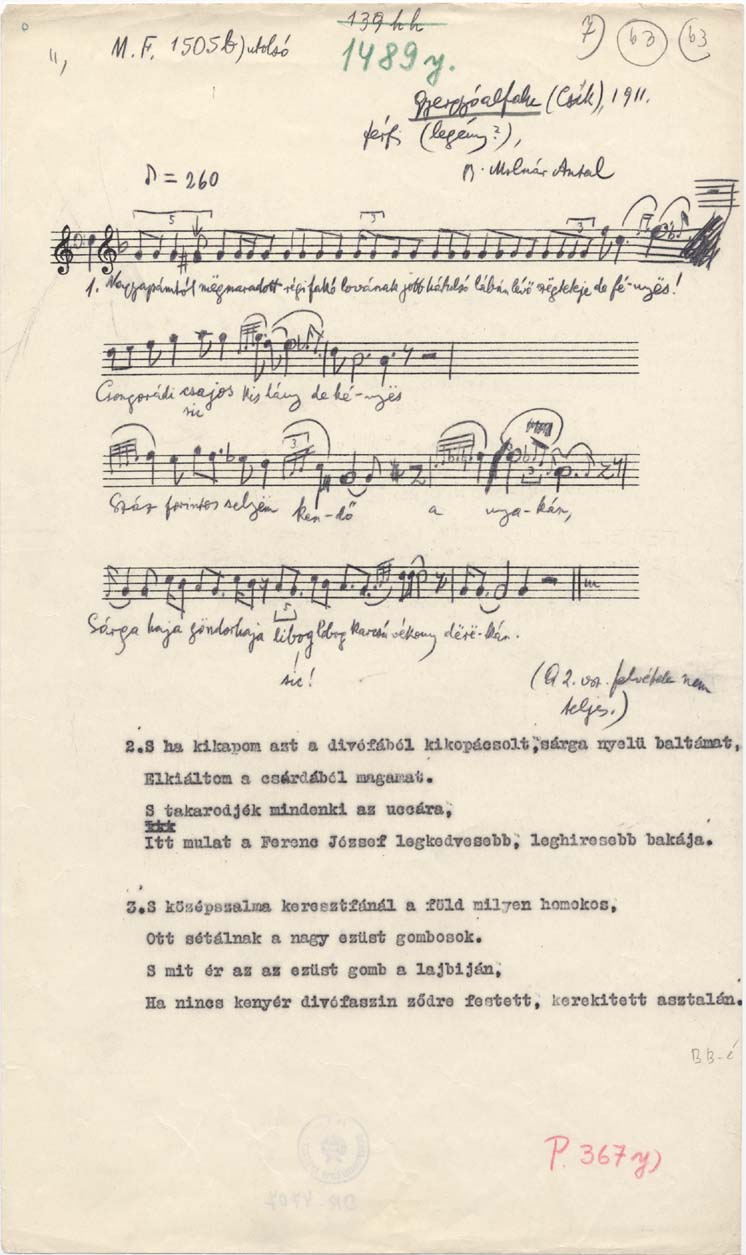 139 hh
M.F. 1505b) utolsó
1489y.
7) 63 63
Gyergyóalfalu (Csík), 1911.
férfi (legény?),
Molnár Antal
♪ = 260
5 3 3
1. Nagyapámtól mëgmaradott régi fakó lovának jobb hátulsó lábán lévő de fé-nyës!
Csongorádi csajos kis lány de ké-nyës
sic
3
Száz forintos selyëm ken-dő a nya-kán,
Sárga haja göndörhaja libog lobog karcsú vékony dërë-kán.
5
sic!
(A 2. vsz. felvétele nem
teljes.)
2.S ha kikapom azt a divófából kikopácsolt,sárga nyelü baltámat,
Elkiáltom a csárdából magamat.
S takarodjék mindenki az uccára,
Itt mulat a Ferenc József legkedvesebb, leghiresebb bakája.
3.S középszalma keresztfánál a föld milyen homokos,
Ott sétálnak a nagy ezüst gombosok.
S mit ér az az ezüst gomb a lajbiján,
Ha nincs kenyér divófaszin ződre festett, kerekitett asztalán.
BB-é
P. 367y)